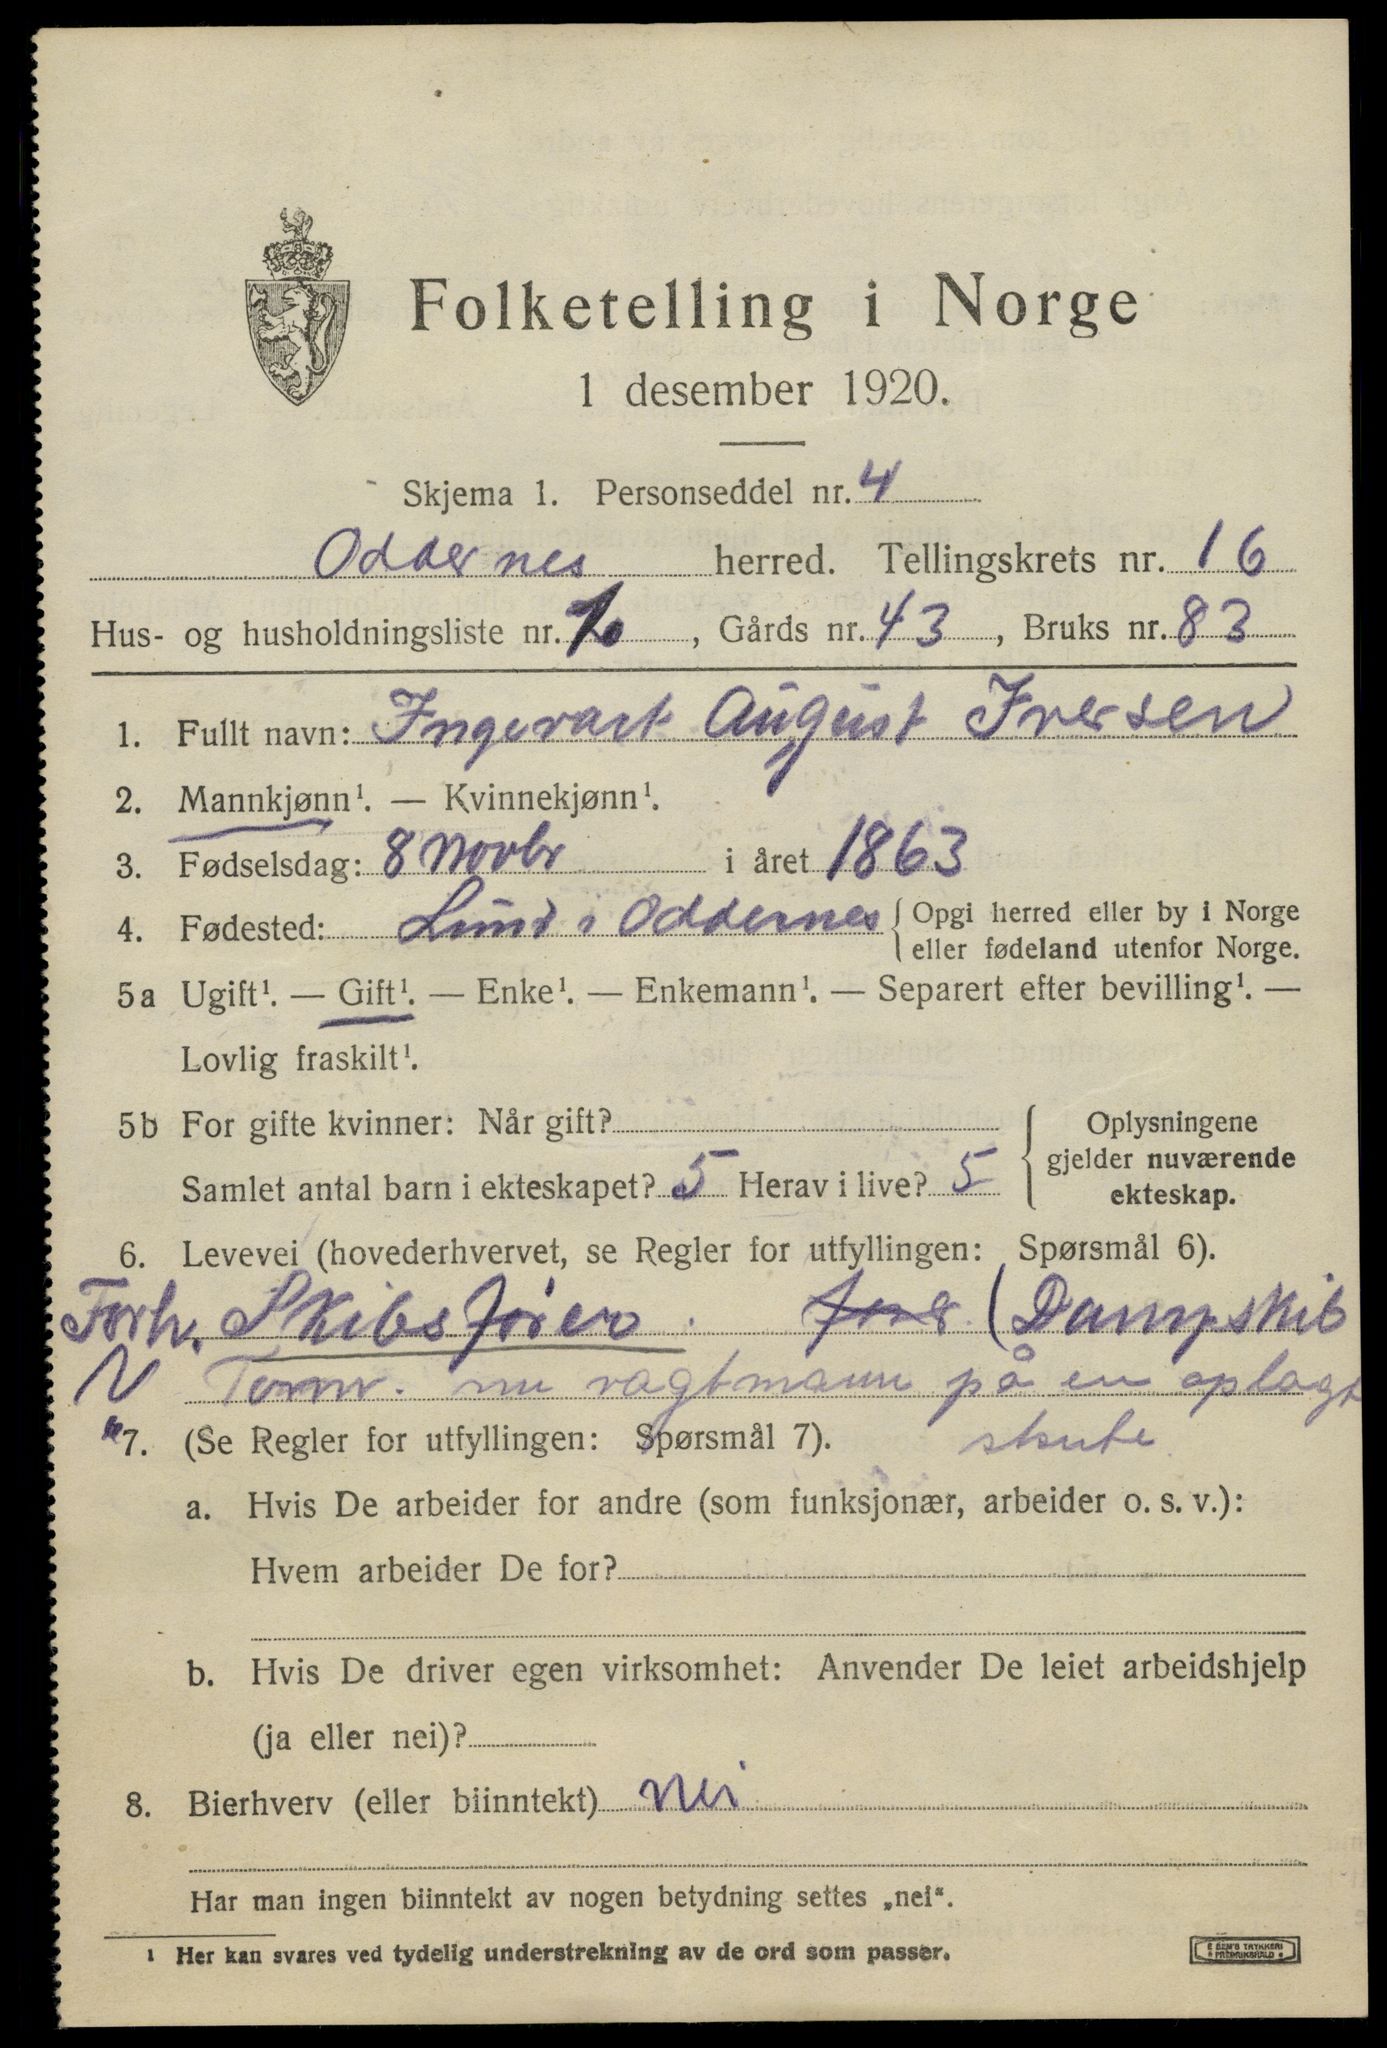 Folketelling i Norge
1 desember 1920.
Skjema 1. Personseddel nr. 4
Oddernes herred. Tellingskrets nr. 16
Hus- og husholdningsliste nr. , Gårds nr. 43, Bruks nr. 83
1. Fullt navn: Ingevart August Iversen
2. Mannkjønn¹. — Kvinnekjønn¹.
3. Fødselsdag: 8 Novbr i året 1863
4. Fødested: Lund i Oddernes { Opgi herred eller by i Norge
eller fødeland utenfor Norge.
5a Ugift¹. — Gift¹. — Enke¹. — Enkemann¹. — Separert efter bevilling¹. —
Lovlig fraskilt¹.
5b For gifte kvinner: Når gift? { Oplysningene
gjelder nuværende
Samlet antal barn i ekteskapet? 5 Herav i live? 5 ekteskap.
6. Levevei (hovederhvervet, se Regler for utfyllingen: Spørsmål 6).
Forh. Skibsfører (Dampskib
N nu vagtmann på en oplagt
skute
7. (Se Regler for utfyllingen: Spørsmål 7).
a. Hvis De arbeider for andre (som funksjonær, arbeider o. s. v.):
Hvem arbeider De for?
b. Hvis De driver egen virksomhet: Anvender De leiet arbeidshjelp
(ja eller nei)?
8. Bierhverv (eller biinntekt) Nei
Har man ingen biinntekt av nogen betydning settes „nei“.
¹ Her kan svares ved tydelig understrekning av de ord som passer.
E SEM'S TRYKKERI
FREDRIKSHALD